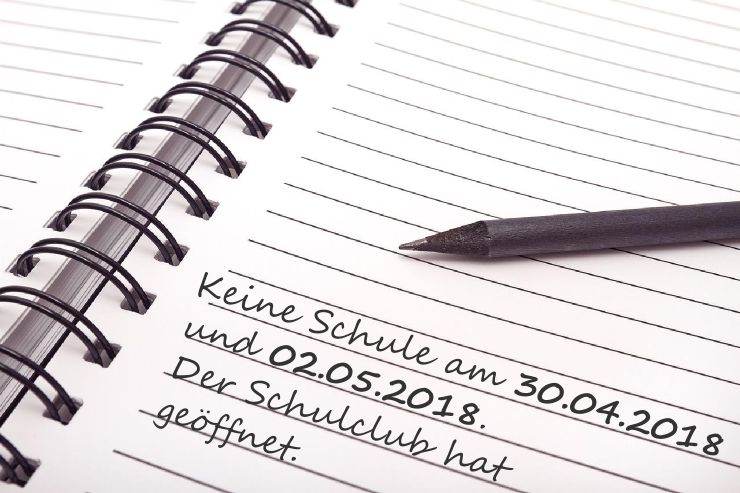 Keine Schule am 30.04.2018
und 02.05.2018.
Der Schulclub hat
geöffnet.